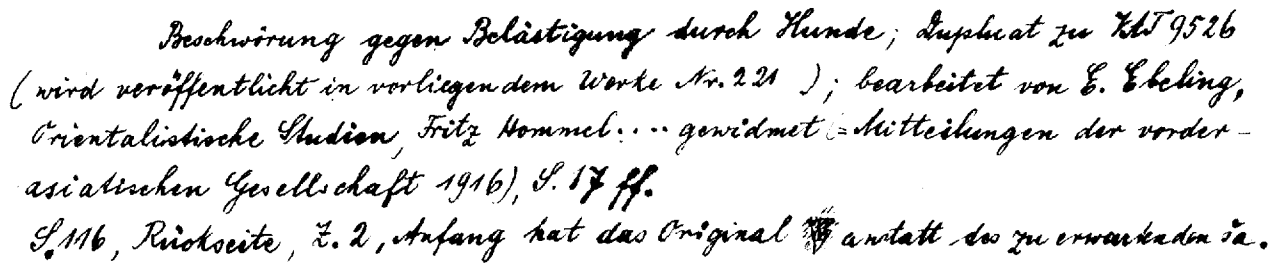 Beschwörung gegen Belästigung durch Hunde; Duplicat zu VAT 9526
(wird veröffentlicht in vorliegendem Werke Nr. 221 ); bearbeitet von E. Ebeling,
Orientalistische Studien, Fritz Hommel .... gewidmet (= Mitteilungen der vorder-
asiatischen Gesellschaft 1916), S. 17 ff.
S. 116, Rückseite, Z. 2, Anfang hat das Original anstatt des zu erwartenden ša.